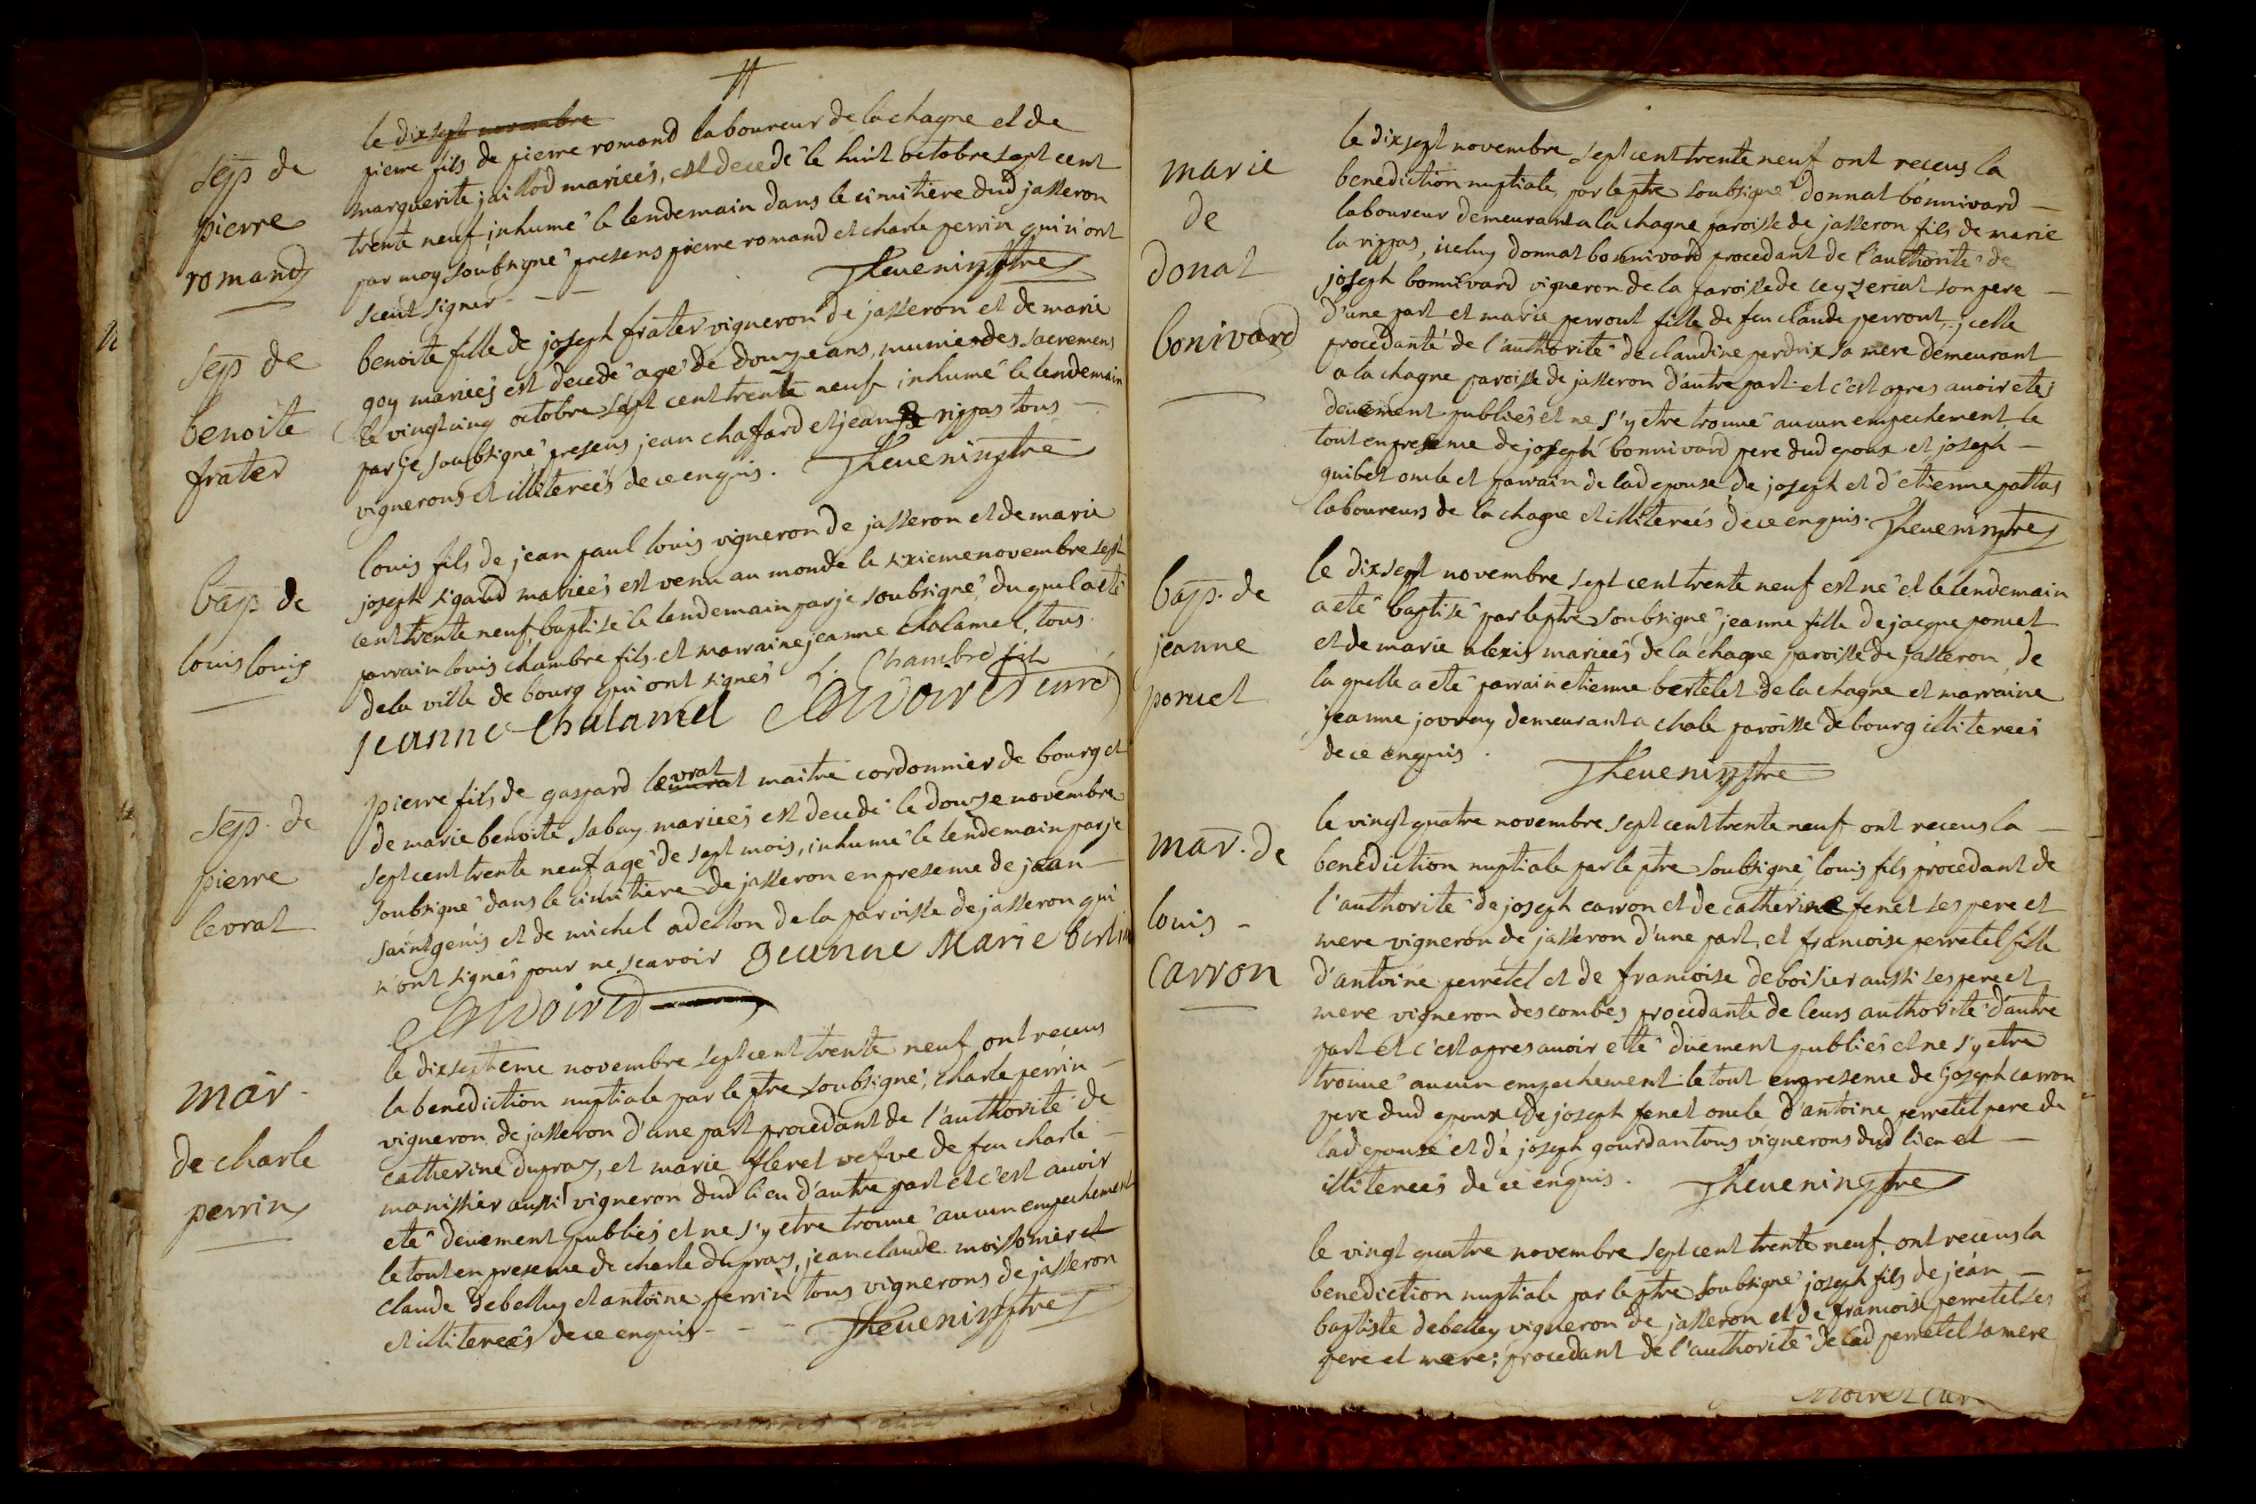 sep de
pierre
romand
le dixsept novembre
pierre fils de pierre romand laboureur de lachagne et de
marguerite jaillod mariees, est decedé le huit octobre sept cent
trente neuf, inhumé le lendemain dans le cimitiere dud jasseron
par moy soubsigné presens pierre romand et charle perrin qui n'ont
sceut signer - - - Thevenin ptre
sep de
benoite
frater
benoite fille de joseph frater vigneron de jasseron et de marie
goy mariees est decedé agé de douze ans, munie des sacremens
le vingt cinq octobre sept cent trente neuf inhumé le lendemain
par je soubsigné presens jean chaffard et jean rippas tous
vignerons et illiterees de ce enquis. Thevenin ptre
bap de
louis louis
louis fils de jean paul louis vigneron de jasseron et de marie
joseph sigaud mariees est venu au monde le sixieme novembre sept
cent trente neuf, baptisé le lendemain par je soubsigné, duquel a eté
parrain louis chambre fils et marraine jeanne chalamel, tous
de la ville de bourg qui ont signes L. Chambre fils
jeanne Chalamel curé
sep. de
pierre
levrat
pierre fils de gaspard levrat maitre cordonnier de bourg et
de marie benoite sabay mariees est decedé le douze novembre
sept cent trente neuf agé de sept mois, inhumé le lendemain par je
soubsigné dans le cimitiere de jasseron en presence de jean
saint genis et de michel de la parroisse de jasseron qui
n'ont signes pour ne scavoir Jeanne Marie
mar.
de charle
perrin
le dixseptieme novembre sept cent trente neuf ont receus
la benediction nuptiale par le ptre soubsigné, charle perrin
vigneron de jasseron d'une part procedant de l'authorité de
catherine dupraz, et marie vefve de feu charle
manissier aussi vigneron dud lieu d'autre part et c'est avoir
eté deuement publies et ne s'y etre trouvé aucun empechement
le tout en presence de charle dupraz, jean claude moissonier et
claude debelley et antoine perrin tous vignerons de jasseron
et illiterees de ce enquis - - - Thevenin ptre
marie
de
donat
bonivard
le dixsept novembre sept cent trente neuf ont receus la
benediction nuptiale par le ptre soubsigné donnat bonnivard
laboureur demeurant a la chagne paroisse de jasseron fils de marie
la rippas, iceluy donnat bonnivard procedant de l'authorité de
joseph bonnivard vigneron de la paroisse de ceyzeriat son pere
d'une part et marie perrout fille de feu claude perrout, icelle
procedante de l'authorité de claudine perdrix sa mere demeurant
a la chagne paroisse de jasseron d'autre part et c'est apres avoir etes
deuement publies et ne s'y etre trouvé aucun empechement, le
tout en presence de joseph bonnivard pere dud epoux et joseph
guibet oncle et parrain de lad epouse de joseph et d'etienne pattas
laboureurs de la chagne et illiterees de ce enquis. Thevenin ptre
bap. de
jeanne
poncet
le dixsept novembre sept cent trente neuf est né et le lendemain
a eté baptisé par le ptre soubsigné jeanne fille de jacque poncet
et de marie alexis mariees de la chagne paroisse de jasseron, de
la quelle a eté parrain etienne bertelet de la chagne et marraine
jeanne jovray demeurant a chale paroisse de bourg illiterees
de ce enquis. Thevenin ptre
mar. de
louis
carron
le vingt quatre novembre sept cent trente neuf ont receus la
benediction nuptiale par le ptre soubsigné, louis fils procedant de
l'authorité de joseph carron et de catherine fenet ses pere et
mere vigneron de jasseron d'une part, et francoise perretel fille
d'antoine perretel et de francoise deboisier aussi ses pere et
mere vigneron des combes procedante de leurs authorité d'autre
part et c'est apres avoir etté duement publies et ne s'y etre
trouvé aucun empechement le tout en presence de joseph carron
pere dud epoux de joseph fenet oncle d'antoine perretel pere de
lad epouse et de joseph gourdan tous vignerons dud lieu et
illiterees de ce enquis. Thevenin ptre
le vingt quatre novembre sept cent trente neuf, ont receus la
benediction nuptiale par le ptre soubsigné joseph fils de jean
baptiste debelley vigneron de jasseron et de francoise perretel ses
pere et mere; procedant de l'authorité de lad perretel sa mere